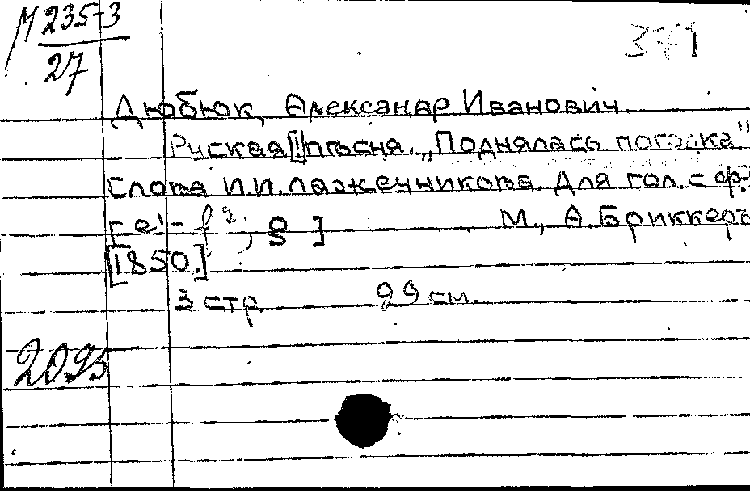 М 235-3
27
371
Дюбюк, Александр Иванович.
Руская[!] пѣсня. „Поднялась погодка"
Слова И.И. Лажечникова. Для гол. с ф.
М., А. Бриккеръ
[1850.]
3 стр. 29 см.
2095